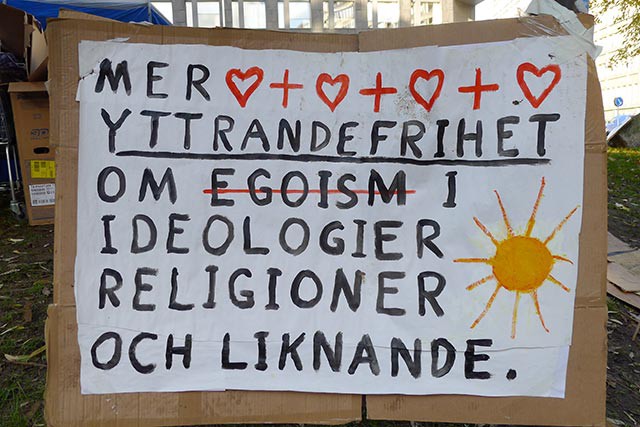 MER ♥+♥+♥+♥
YTTRANDEFRIHET
OM EGOISM I
IDEOLOGIER
RELIGIONER
OCH LIKNANDE.